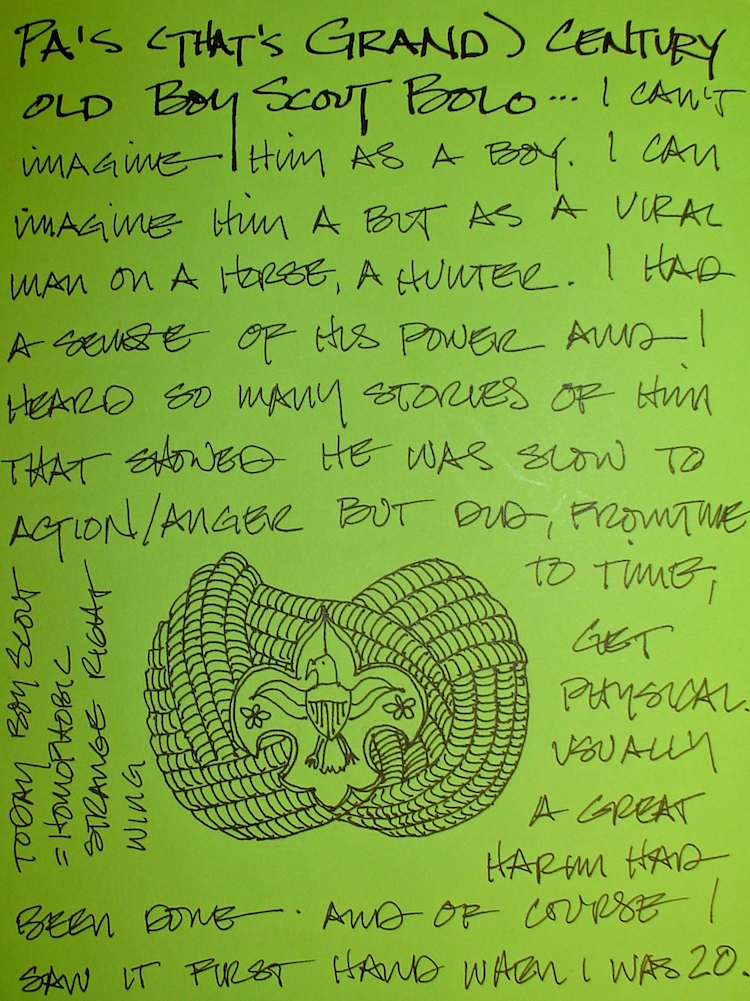 PA'S (THAT'S GRAND) CENTURY
OLD BOY SCOUT BOLO... I CAN'T
IMAGINE HIM AS A BOY. I CAN
IMAGINE HIM A BUT AS A VIRAL
MAN ON A HORSE, A HUNTER. I HAD
A SENSE OF HIS POWER AND I
HEARD SO MANY STORIES OF HIM
THAT SHOWED HE WAS SLOW TO
ACTION/ANGER BUT DID, FROM TIME
TO TIME,
GET
PHYSICAL.
USUALLY
A GREAT
HARM HAD
BEEN DONE. AND OF COURSE I
SAW IT FIRST HAND WHEN I WAS 20.
TODAY BOY SCOUT
= HOMOPHOBIC
STRANGE RIGHT
WING